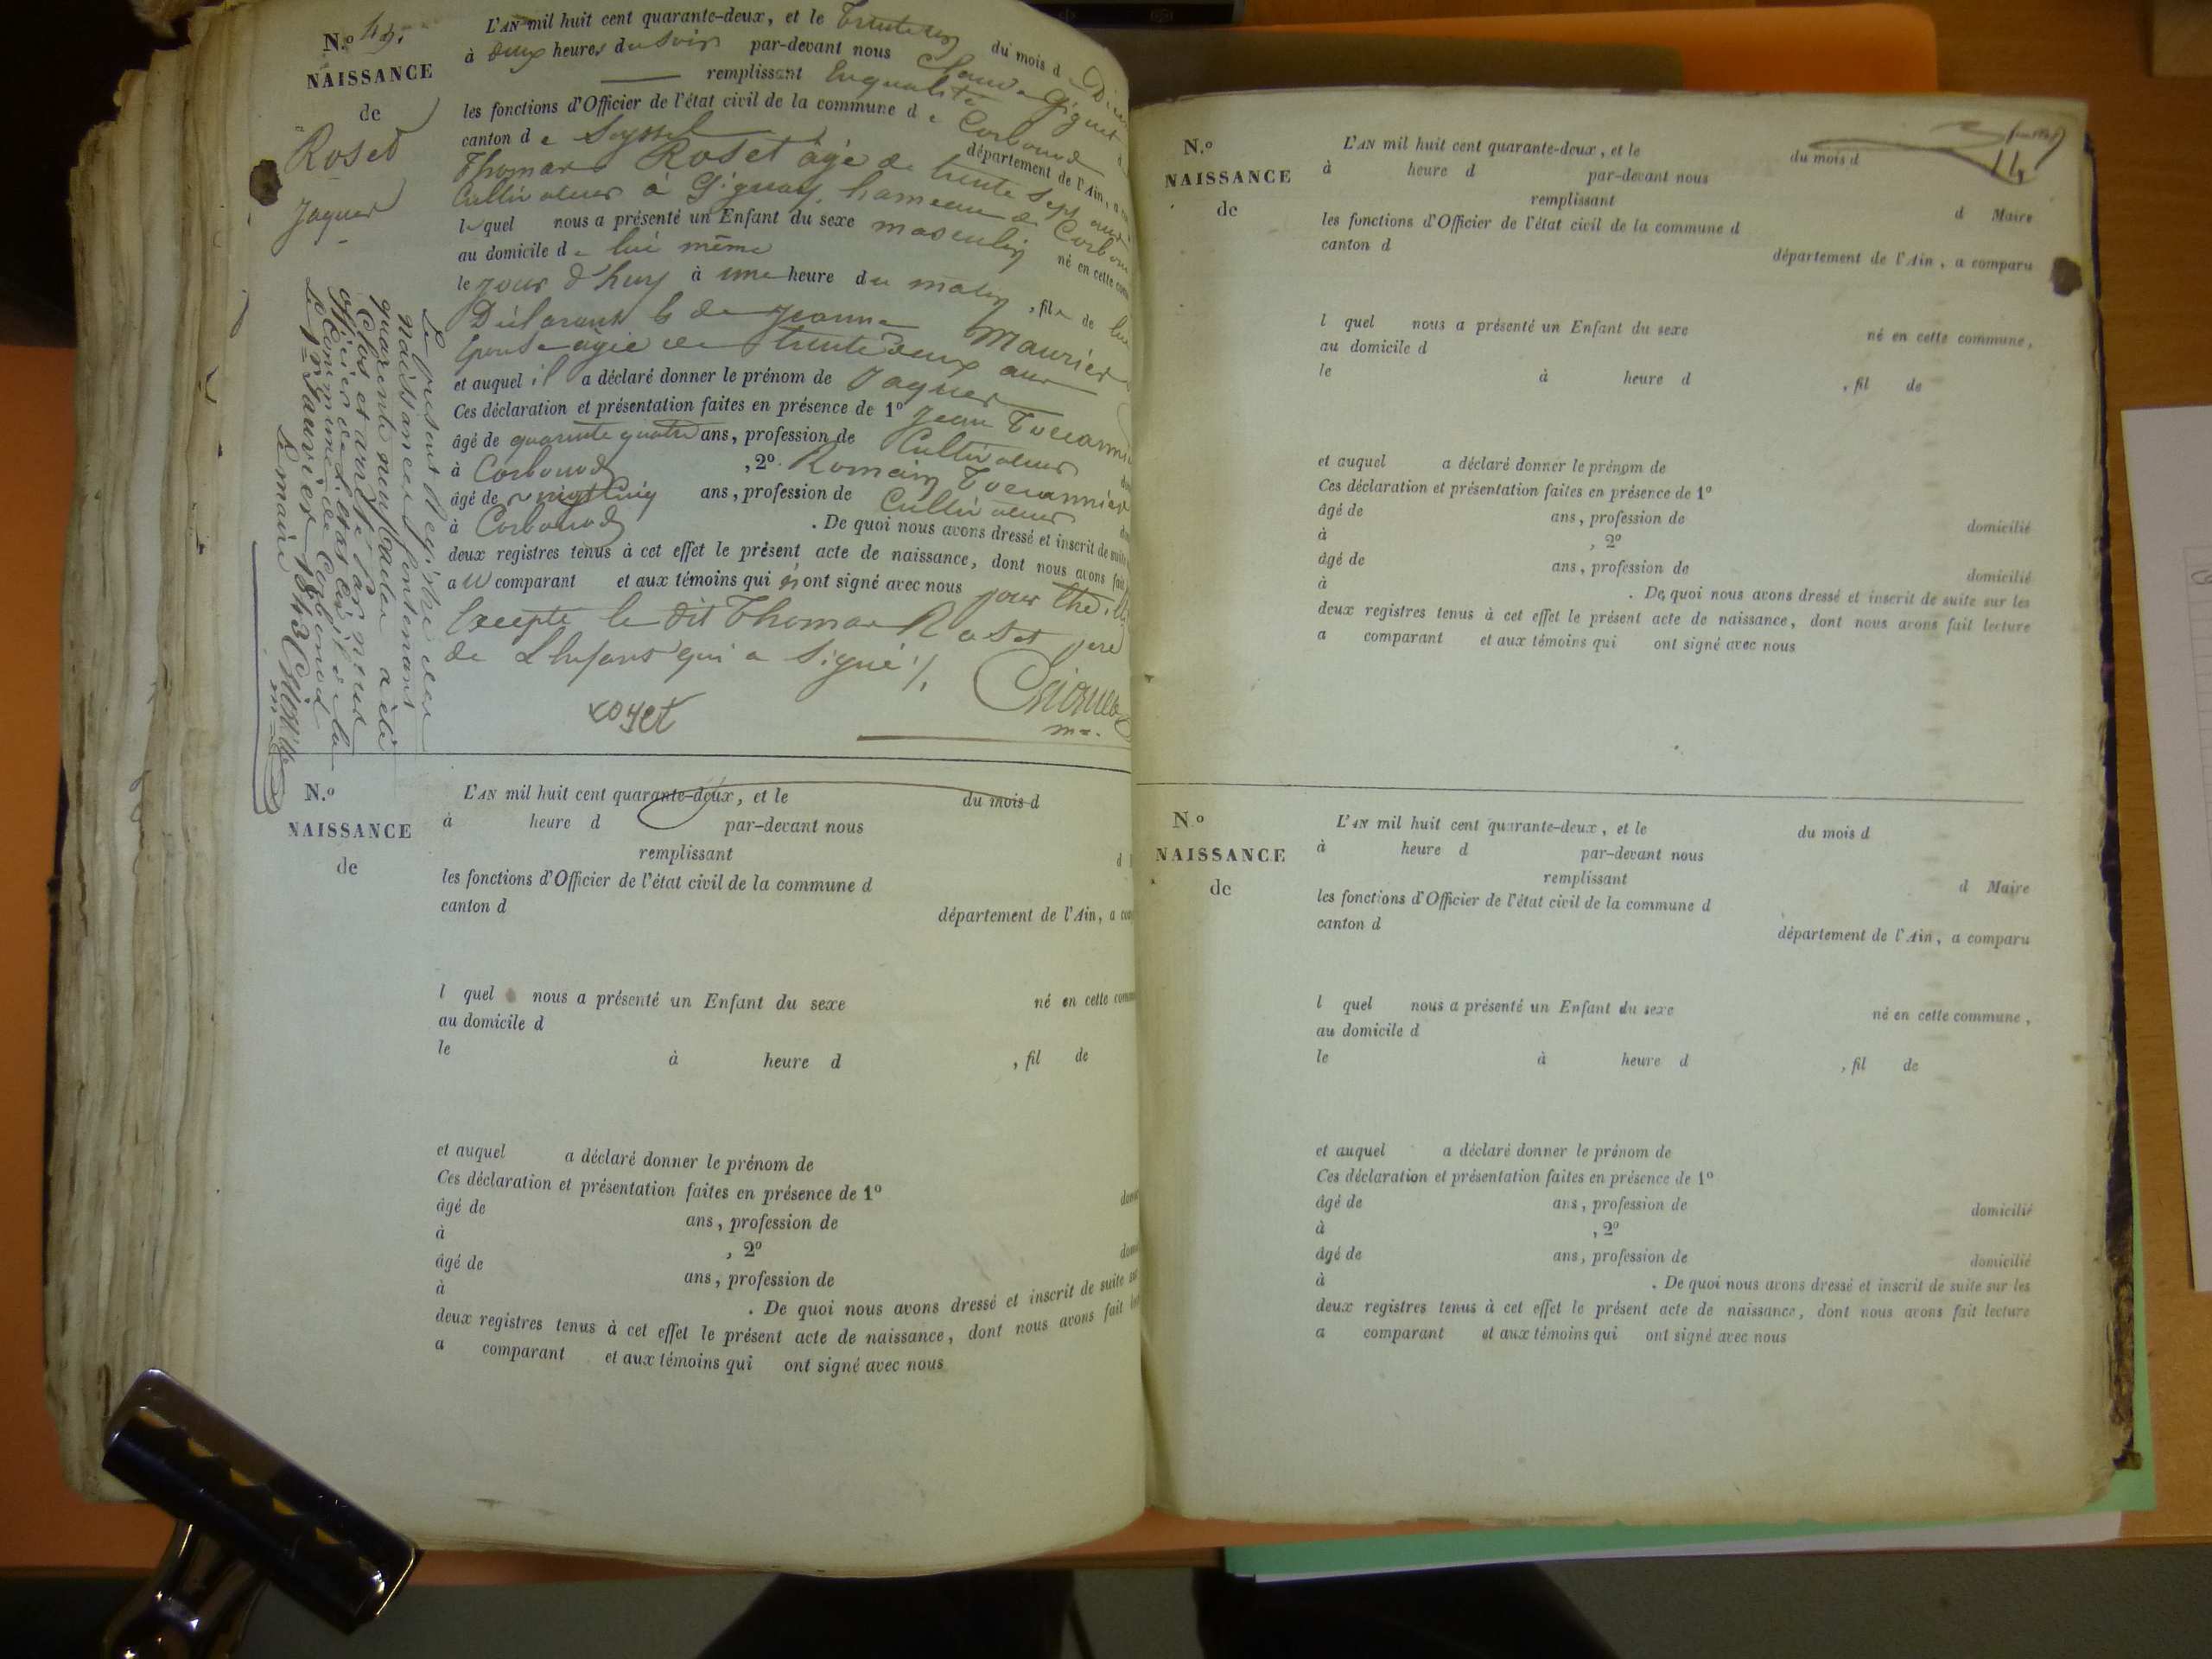 N.º 49.
NAISSANCE
de
Roset
Jaques
L'AN mil huit cent quarante-deux, et le Trente un du mois d
à deux heures du Soir par-devant nous Claude Giguet
remplissant En qualité
les fonctions d'Officier de l'état civil de la commune de Corbonod
canton de Seyssel département de l'Ain, a
Thomas Roset âgé de trente Sept ans
Cultivateur à Gignay, hameau de Corbonod
lequel nous a présenté un Enfant du sexe masculin né en cette
au domicile de lui même
le jour d'huy à une heure du matin, fils de lui
Déclarant & de Jeanne Maurier
Epouse agée de trente deux ans
et auquel il a déclaré donner le prénom de Jaques
Ces déclaration et présentation faites en présence de 1º Jean
âgé de quarante quatre ans, profession de Cultivateur
à Corbonod, 2º Romain
âgé de vingt cinq ans, profession de Cultivateur
à Corbonod. De quoi nous avons dressé et inscrit de suite
deux registres tenus à cet effet le présent acte de naissance, dont nous avons fait
au comparant et aux témoins qui n'ont signé avec nous pour
Excepté le dit Thomas Roset père
de L'enfant qui a Signé ./.
royet
m=.
Le présent Registre des
naissances contenant
quarante neuf actes a été
Clos et arrêté par nous
officier de l'état civil de la
Commune de Corbonod
Le 1er Janvier 1843
Le maire
N.º
NAISSANCE
de
L'AN mil huit cent quarante-deux, et le du mois d
à heure d par-devant nous
remplissant d
les fonctions d'Officier de l'état civil de la commune d
canton d
département de l'Ain, a
l quel nous a présenté un Enfant du sexe né en cette
au domicile d
le à heure d , fil de
et auquel a déclaré donner le prénom de
Ces déclaration et présentation faites en présence de 1º
âgé de ans, profession de
à , 2º
âgé de ans, profession de
à . De quoi nous avons dressé et inscrit de suite
deux registres tenus à cet effet le présent acte de naissance, dont nous avons fait
a comparant et aux témoins qui ont signé avec nous
N.º
NAISSANCE
de
L'AN mil huit cent quarante-deux, et le du mois d
à heure d par-devant nous
remplissant d Maire
les fonctions d'Officier de l'état civil de la commune d
canton d
département de l'Ain, a comparu
l quel nous a présenté un Enfant du sexe né en cette commune,
au domicile d
le à heure d , fil de
et auquel a déclaré donner le prénom de
Ces déclaration et présentation faites en présence de 1º
âgé de ans, profession de domicilié
à , 2º
âgé de ans, profession de domicilié
à . De quoi nous avons dressé et inscrit de suite sur les
deux registres tenus à cet effet le présent acte de naissance, dont nous avons fait lecture
a comparant et aux témoins qui ont signé avec nous
N.º
NAISSANCE
de
L'AN mil huit cent quarante-deux, et le du mois d
à heure d par-devant nous
remplissant d Maire
les fonctions d'Officier de l'état civil de la commune d
canton d
département de l'Ain, a comparu
l quel nous a présenté un Enfant du sexe né en cette commune,
au domicile d
le à heure d , fil de
et auquel a déclaré donner le prénom de
Ces déclaration et présentation faites en présence de 1º
âgé de ans, profession de domicilié
à , 2º
âgé de ans, profession de domicilié
à . De quoi nous avons dressé et inscrit de suite sur les
deux registres tenus à cet effet le présent acte de naissance, dont nous avons fait lecture
a comparant et aux témoins qui ont signé avec nous